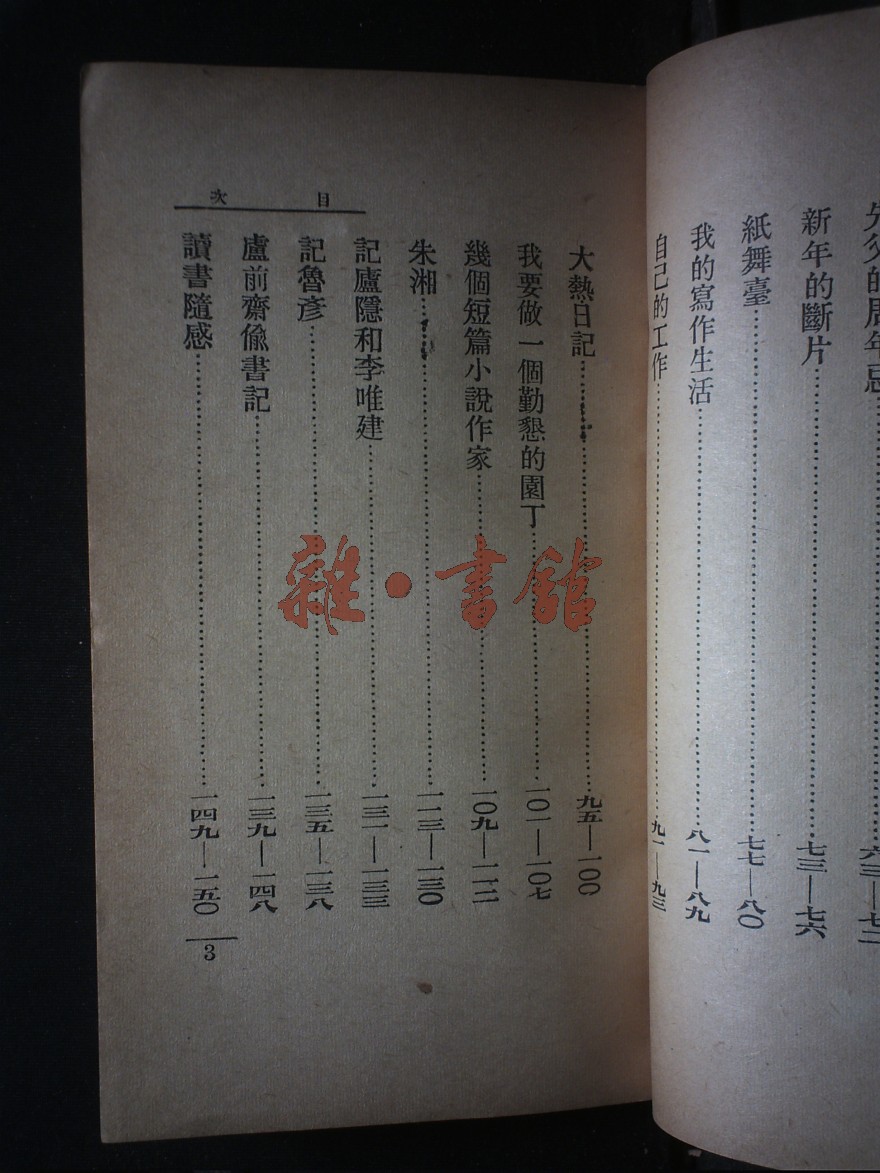 先父的周年忌………六三—七二
新年的斷片………七三—七六
紙舞臺………七七—八〇
我的寫作生活………八一—八九
自己的工作………九一—九三
目次
大熱日記………九五—一〇〇
我要做一個勤懇的園丁………一〇一—一〇七
幾個短篇小說作家………一〇九—一一二
朱湘………一一三—一三〇
記廬隱和李唯建………一三一—一三三
記魯彥………一三五—一三八
盧前齋偸書記………一三九—一四八
讀書隨感………一四九—一五〇
3
雜·書館